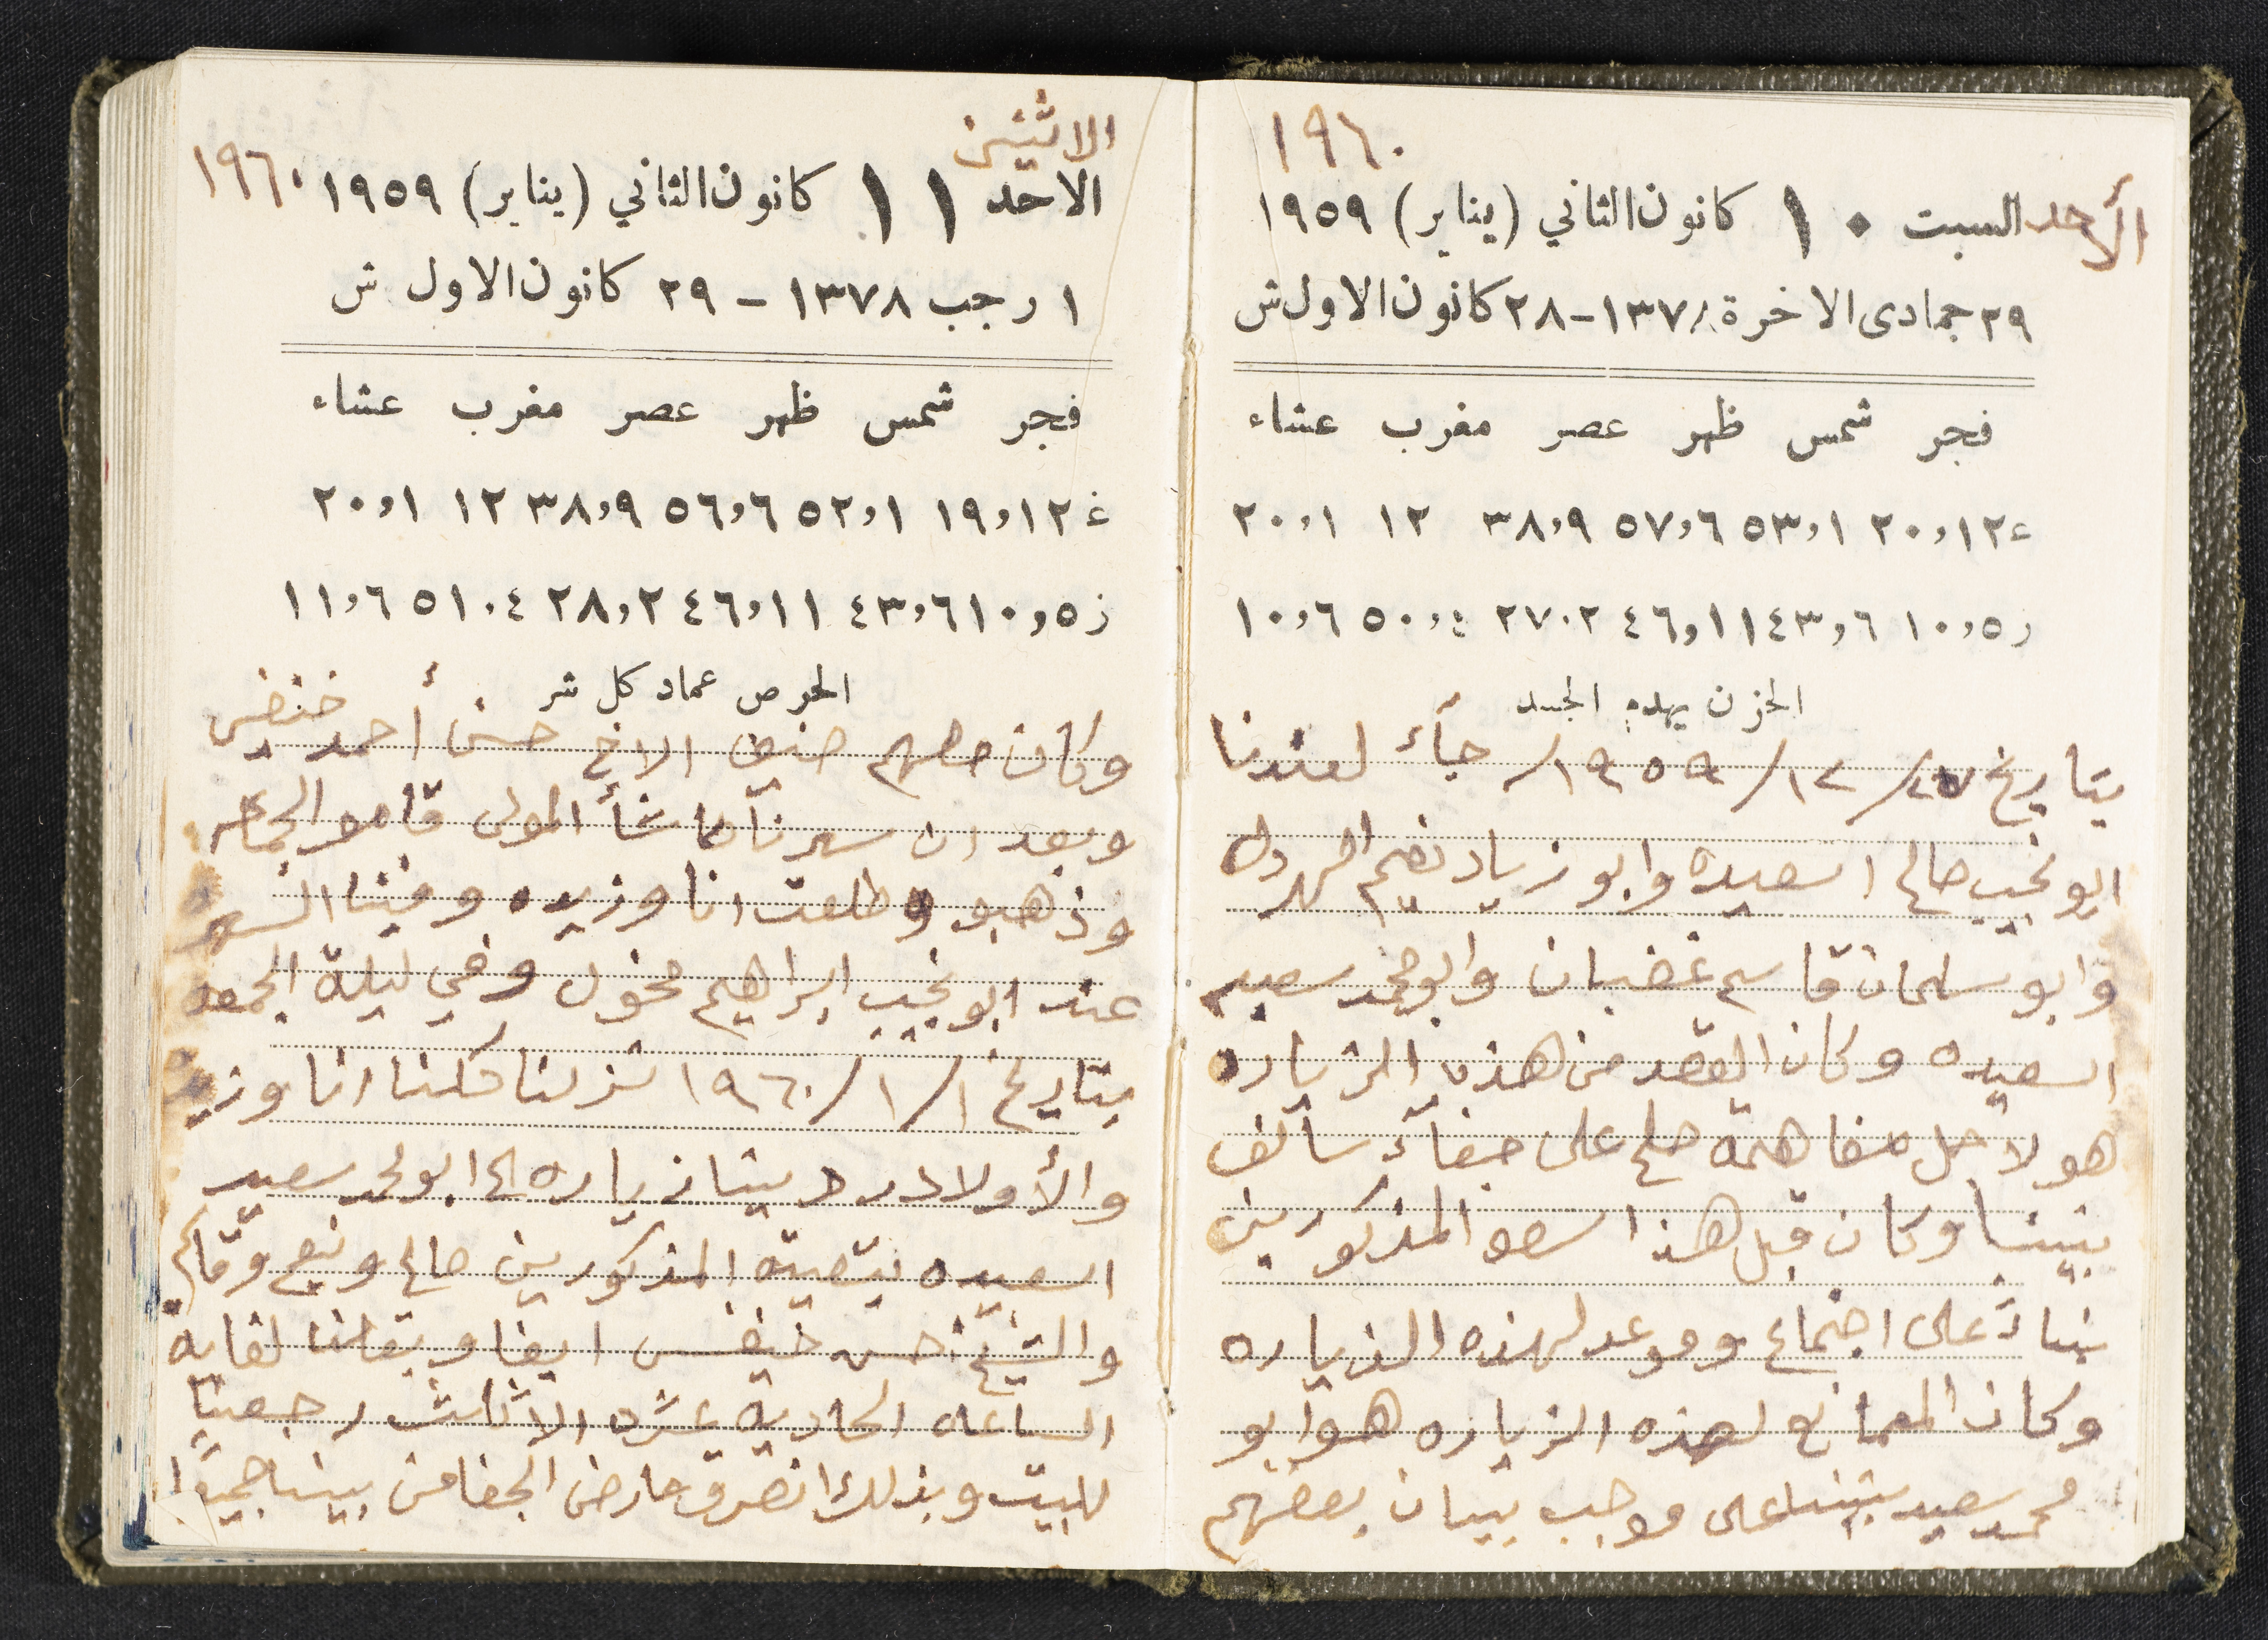 ١٩٦٠
الأحد السبت ١٠ كانون الثاني (يناير) ١٩٥٩
٢٩ جمادى الاخرة ١٣٧٨-٢٨ كانون الاول ش
فجر شمس ظهر عصر مغرب عشاء
ع ٢٠,١٢ ٥٣,١ ٥٧,٦ ٣٨,٩ ١٢ ٢٠,١
ز ١٠,٥ ٤٣,٦ ٤٦,١١ ٢٧,٢ ٥٠,٤ ١٠,٦
الحزن يهدم الجسد
بتاريخ ١٩٥٩/١٢/ جآء لعندنا
ابو نجيب صالح اسعيده وابو زياد نعيم
وابو سلمان قاسم غضبان وابو محمد سعيد
اسعيده وكان القصد من هذه الزياره
هو لاجل مفاهمة صلح على جفآء سآلف
بيننا وكان قبل هذا المذكورين
بناءً على اجتماع وموعد لهذه الزياره
وكان الممانع لهذه الزياره هو ابو
محمد سعيد على موجب بيان بعضهم
الاثنين
الاحد ١١ كانون الثاني (يناير) ١٩٥٩ ١٩٦٠
١ رجب ١٣٧٨ - ٢٩ كانون الاول ش
فجر شمس ظهر عصر مغرب عشاء
ع ١٩,١٢ ٥٢,١ ٥٦,٦ ٣٨,٩ ١٢ ٢٠,١
ز ١٠,٥ ٤٣,٦ ٤٦,١١ ٢٨,٢ ٥١,٤ ١١,٦
الحرص عماد كل شر
وكان معهم الاخ حسن أحمد خنيفس
وبعد ان سهرنا ما شأ المولى قاموا الجماعه
وذهبو وطلعت انا وزيده وفينا السهره
عند ابو نجيب ابراهيم مخول وفي ليلة الجمعه
بتاريخ ١٩٦٠/١/١ نزلنا كلنا انا وزيده
والأولاد ردينا زياره الى ابو محمد سعيد
اسعيده بمعية المذكورين صالح ونعيم وقاسم
والشيخ حسن خنيفس ايضا وبقينا لغاية
الساعه الحادية عشره الا ثلث رجعنا
للبيت وبذلك انصرف عارض الجفا من بيننا جميعًا